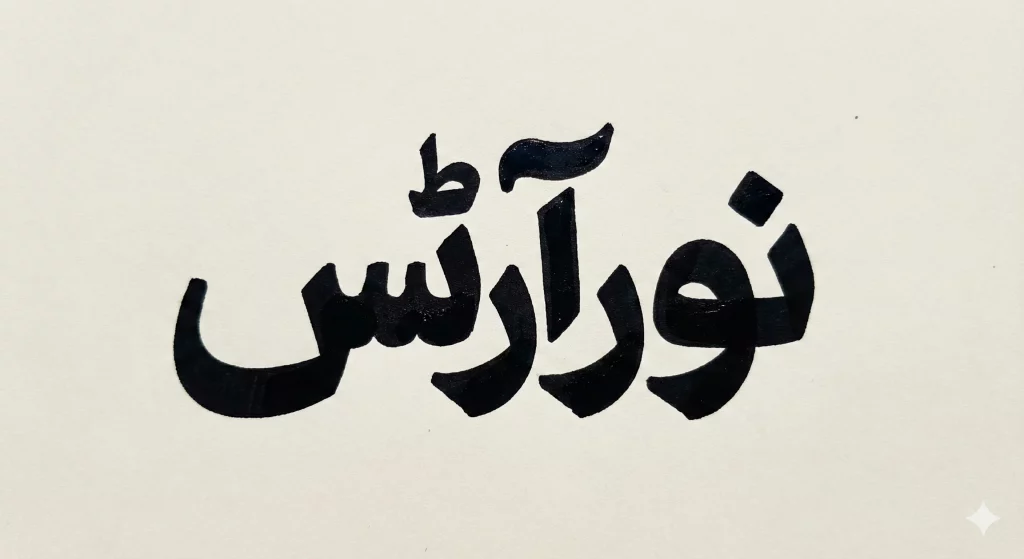 نور آرٹس